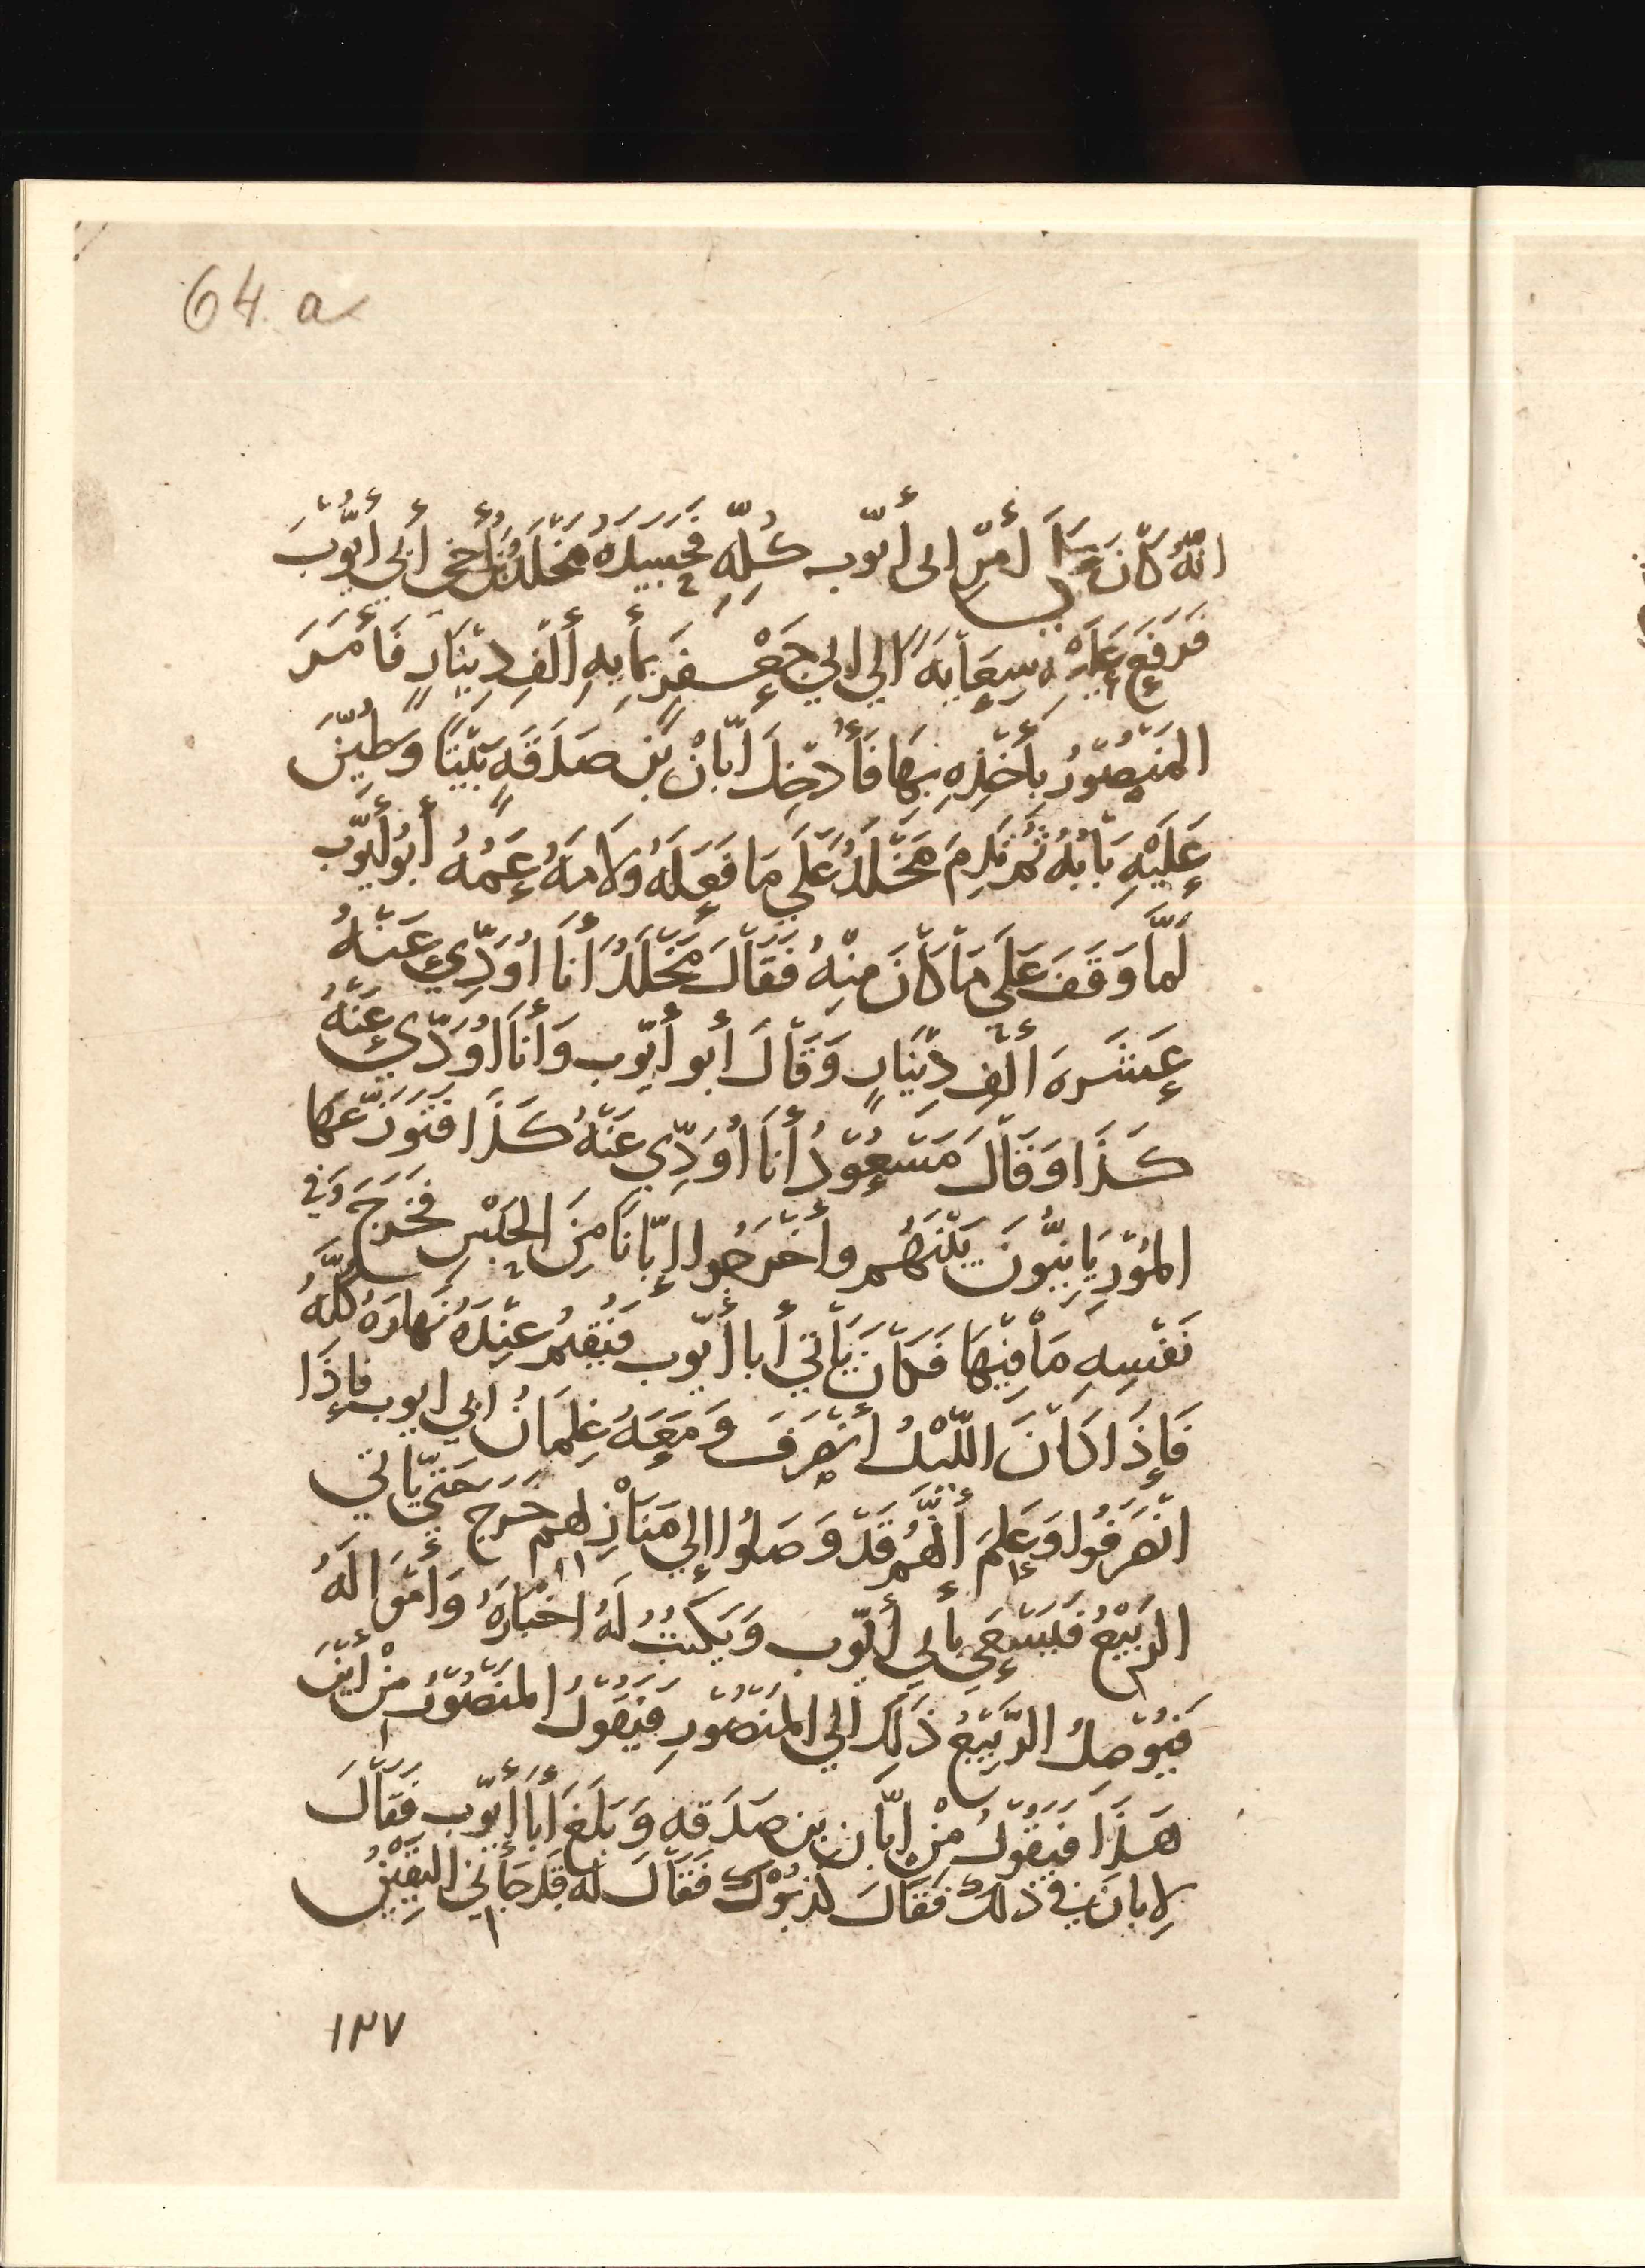 64 a
انّهُ كَانَ أمْرِ أبى أيّوب كُلِّهِ فَحَسَدَهُ مَخْلَدُ بْنُ أخى أبي أيُّوْبَ
فَرَفَعَ عَلَيْهِ سِعَايَةً الي ابي جَعْفَرٍ بمايهِ ألْفِ دِيْنَارٍ فَأمَرَ
المَنْصُوْرُ بِأخْذِهِ بِهَا فَأُدْخِلَ ابَّانْ بْن صَدَقَهٍ بَيْتًا وَطُيِّنَ
عَلَيْهِ بَابُهُ ثُم نَدِمَ مَخْلَدُ عَلَي مَا فَعَلَهُ وَلَامَهُ عَمُّهُ أبُو أيّوب
لَمَّا وَقَفَ عَلَى مَا كَانَ مِنْهُ فَقَالَ مَخْلَدُ أنَا اُوَدِّي عَنْهُ
عَشَرَهَ ألْفِ دِيْنَارٍ وَقَالَ أبو أيّوب وَأنَا اُوَدّي عَنْهُ
كَذَا وَقَالَ مَسْعُوْدُ أنَا اُوَدِّي عَنْهُ كَذَا فَتَوَزَّعَهَا
المُوْرِيَانِيُّونَ بَيْنَهُم وأخْرَجُوا إبّانَا مِنَ الحَبْسِ فَخَرَجَ وَفي
نَفْسِهِ مَا فِيْهَا فَكَانَ يَأتي أبا أيّوب فَيُقِيمُ عِنْدَهُ نَهَارَهُ كُلَّهُ
فَإِذَا كَانَ اللّيْلُ أنْصَرَفَ وَمَعَهُ غِلمَانُ ابي ايوب فَإذَا
انْصَرَفُوا وَعَلِمَ أنَّهُم قَدْ وَصَلُوا إلي مَنَازِلِهم خَرَج حَتّي يَاتي
الرّبيْعُ فَيَسْعَي بأبي أيّوب وَيَكْتُبُ لَهُ اخْبَارَهُ وَأمْوَالَهُ
فَيُوْصِلُ الرَّبِيْعُ ذَلِكَ الي المَنْصُوْرِ فَيَقُوْلُ المَنْصُوْرُ مِنْ أيْنَ
هَذَا فَيَقُوْلُ مِنْ ابّان بْن صَدَقهِ وَبَلَغَ أبَا أيّوب فَقَالَ
لِابانَ في ذلكَ فَقَالَ فَقَالَ لَهُ قَدْ جَاني اليَقِيْنُ
١٣٧